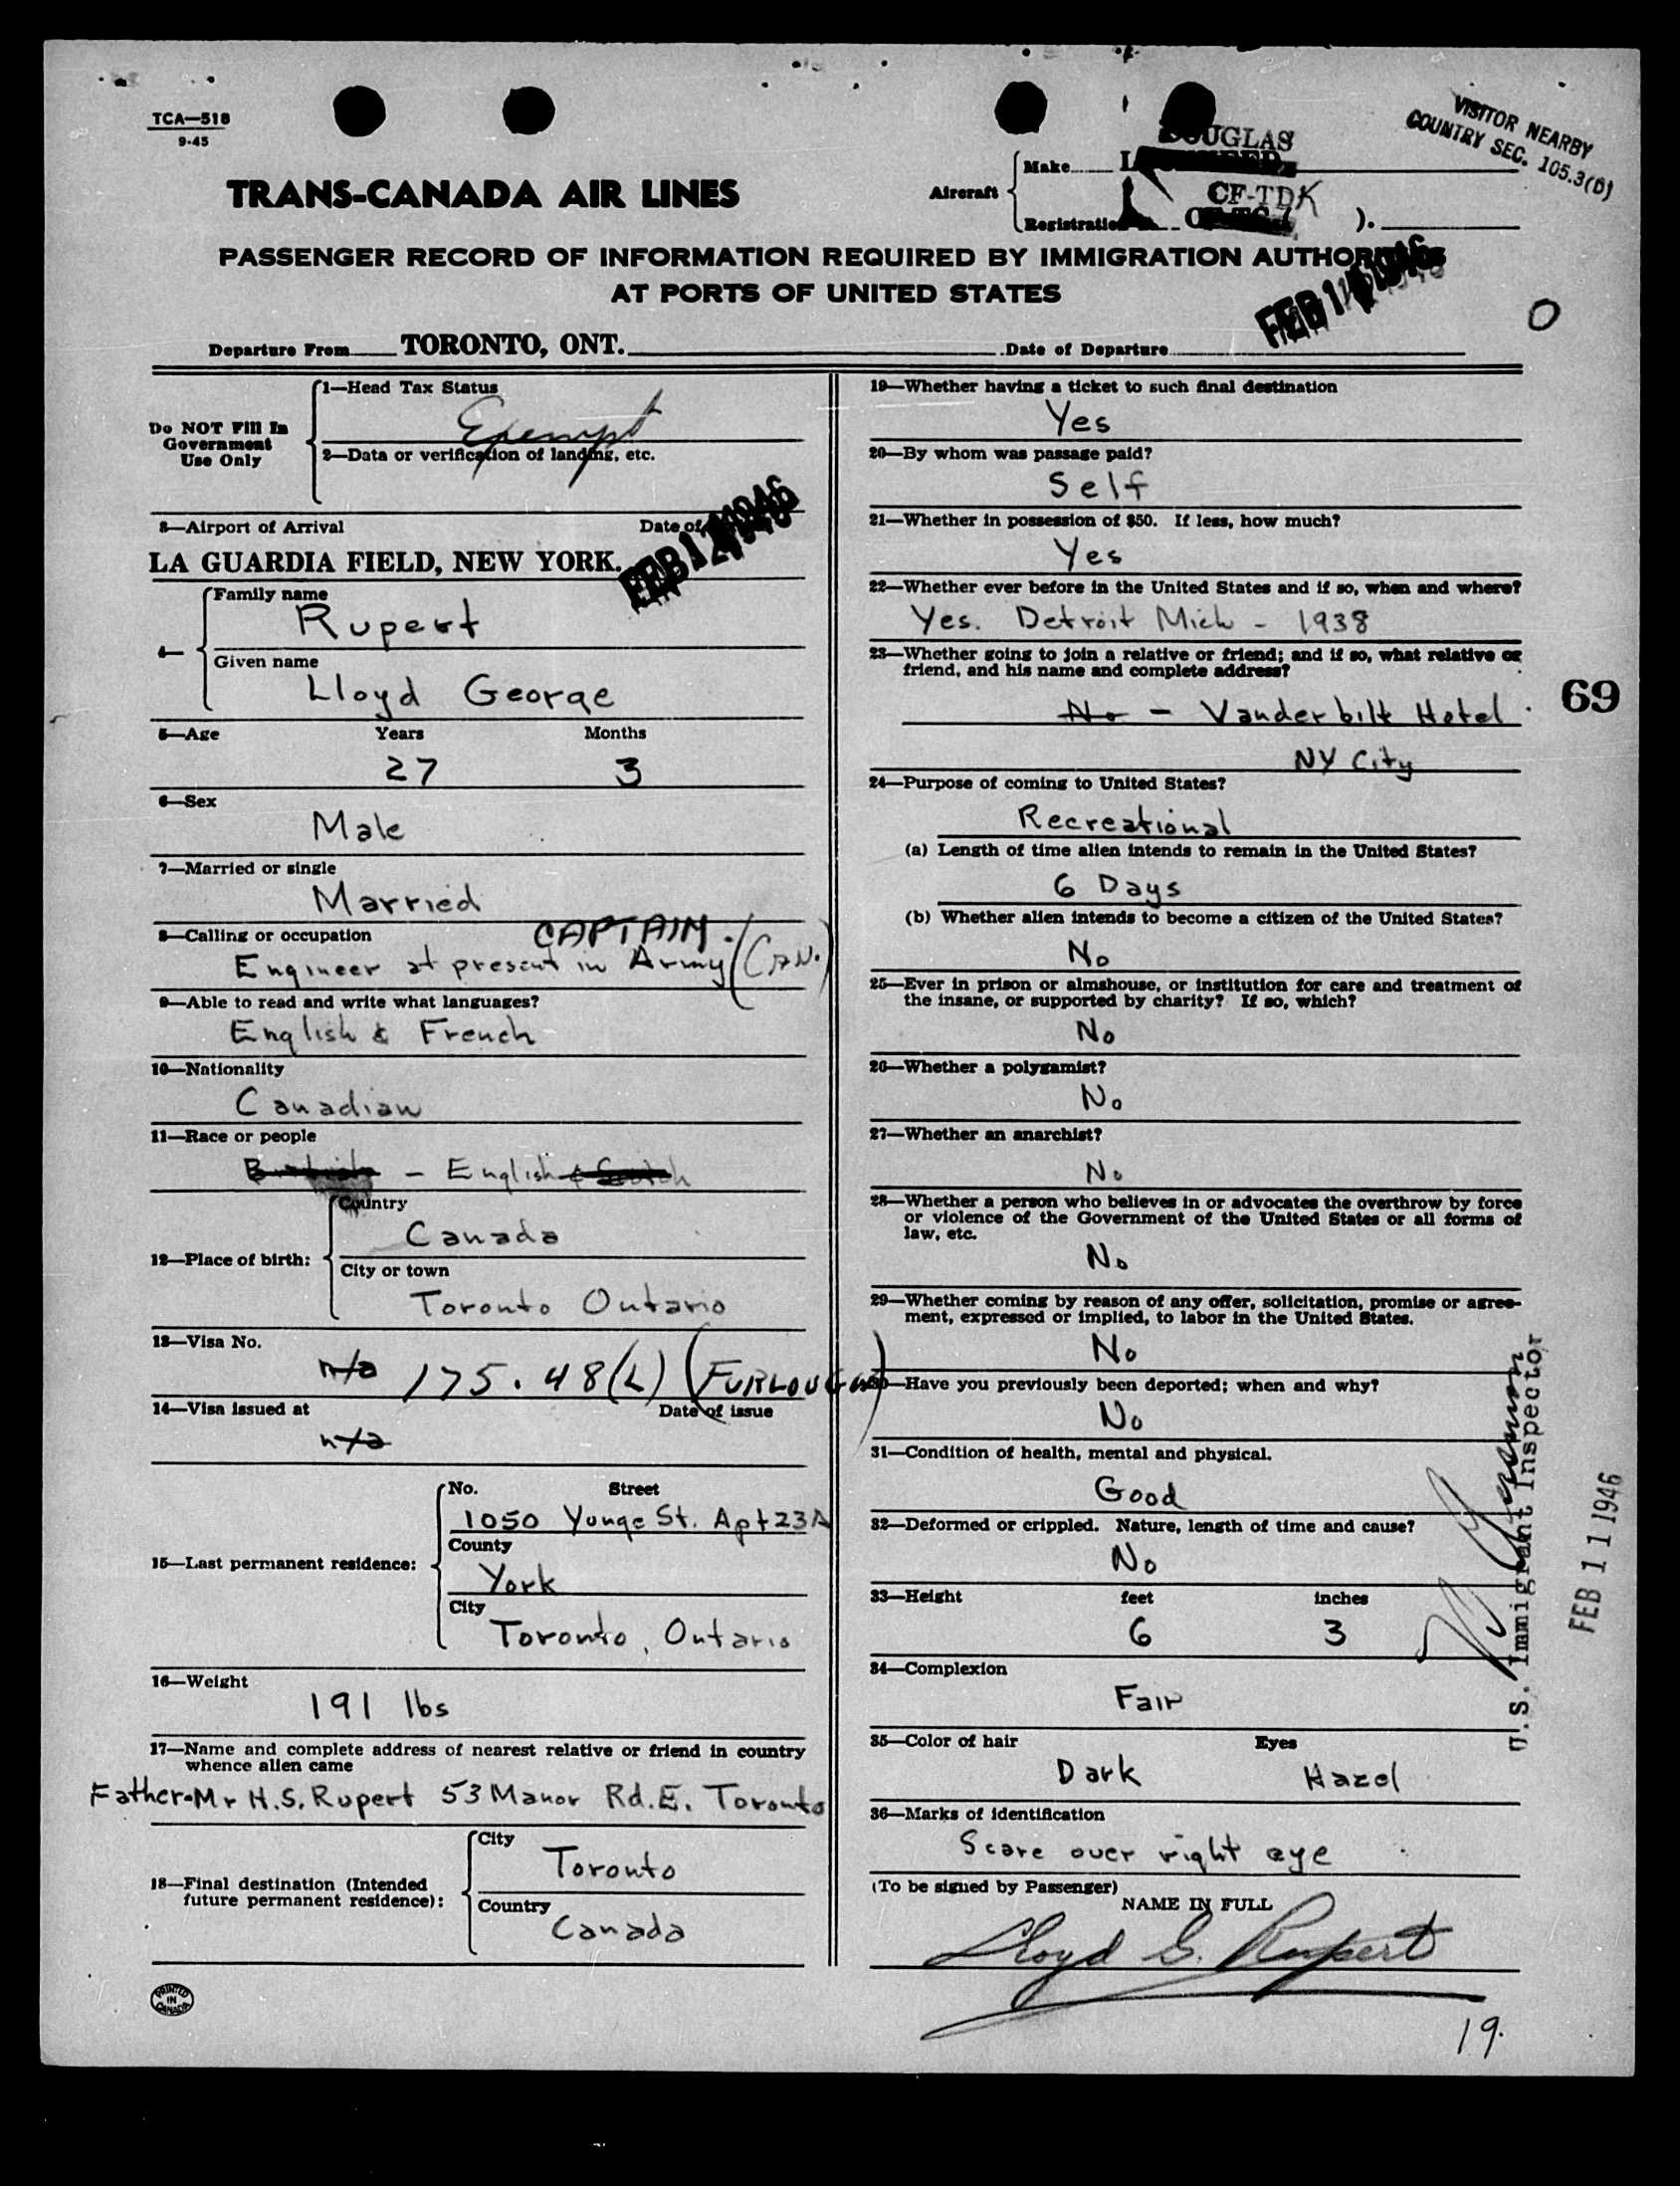 TCA—518
9-45
VISITOR NEARBY
COUNTRY SEC. 105.3(b)
TRANS-CANADA AIR LINES
Aircraft
Make
DOUGLAS
Registration
CF-TDK
).
PASSENGER RECORD OF INFORMATION REQUIRED BY IMMIGRATION AUTHORITIES
AT PORTS OF UNITED STATES
Departure From TORONTO, ONT. Date of Departure FEB 1 1946
O
Do NOT Fill In
Government
Use Only
1—Head Tax Status
Exempt
2—Data or verification of landing, etc.
3—Airport of Arrival Date of
LA GUARDIA FIELD, NEW YORK. FEB 1 1946
4—
Family name
Rupert
Given name
Lloyd George
5—Age Years Months
27 3
6—Sex
Male
7—Married or single
Married
8—Calling or occupation CAPTAIN.
Engineer at present in Army (CAN.)
9—Able to read and write what languages?
English & French
10—Nationality
Canadian
11—Race or people
British – English & Scotch
12—Place of birth:
Country
Canada
City or town
Toronto Ontario
13—Visa No.
n/a 175.48(L) (FURLOUGH)
14—Visa issued at Date of issue
n/a
15—Last permanent residence:
No. Street
1050 Yonge St. Apt 23A
County
York
City
Toronto, Ontario
16—Weight
191 lbs
17—Name and complete address of nearest relative or friend in country
whence alien came
Father-Mr H.S. Rupert 53 Manor Rd. E. Toronto
18—Final destination (Intended
future permanent residence):
City
Toronto
Country
Canada
PRINTED
IN
CANADA
19—Whether having a ticket to such final destination
Yes
20—By whom was passage paid?
Self
21—Whether in possession of $50. If less, how much?
Yes
22—Whether ever before in the United States and if so, when and where?
Yes. Detroit Mich - 1938
23—Whether going to join a relative or friend; and if so, what relative or
friend, and his name and complete address?
No – Vanderbilt Hotel
NY City
69
24—Purpose of coming to United States?
Recreational
(a) Length of time alien intends to remain in the United States?
6 Days
(b) Whether alien intends to become a citizen of the United States?
No
25—Ever in prison or almshouse, or institution for care and treatment of
the insane, or supported by charity? If so, which?
No
26—Whether a polygamist?
No
27—Whether an anarchist?
No
28—Whether a person who believes in or advocates the overthrow by force
or violence of the Government of the United States or all forms of
law, etc.
No
29—Whether coming by reason of any offer, solicitation, promise or agree-
ment, expressed or implied, to labor in the United States.
No
30—Have you previously been deported; when and why?
No
31—Condition of health, mental and physical.
Good
32—Deformed or crippled. Nature, length of time and cause?
No
33—Height feet inches
6 3
34—Complexion
Fair
35—Color of hair Eyes
Dark Hazel
36—Marks of identification
Scare over right eye
(To be signed by Passenger)
NAME IN FULL
Lloyd G. Rupert
19.
U.S. Immigrant Inspector
FEB 11 1946